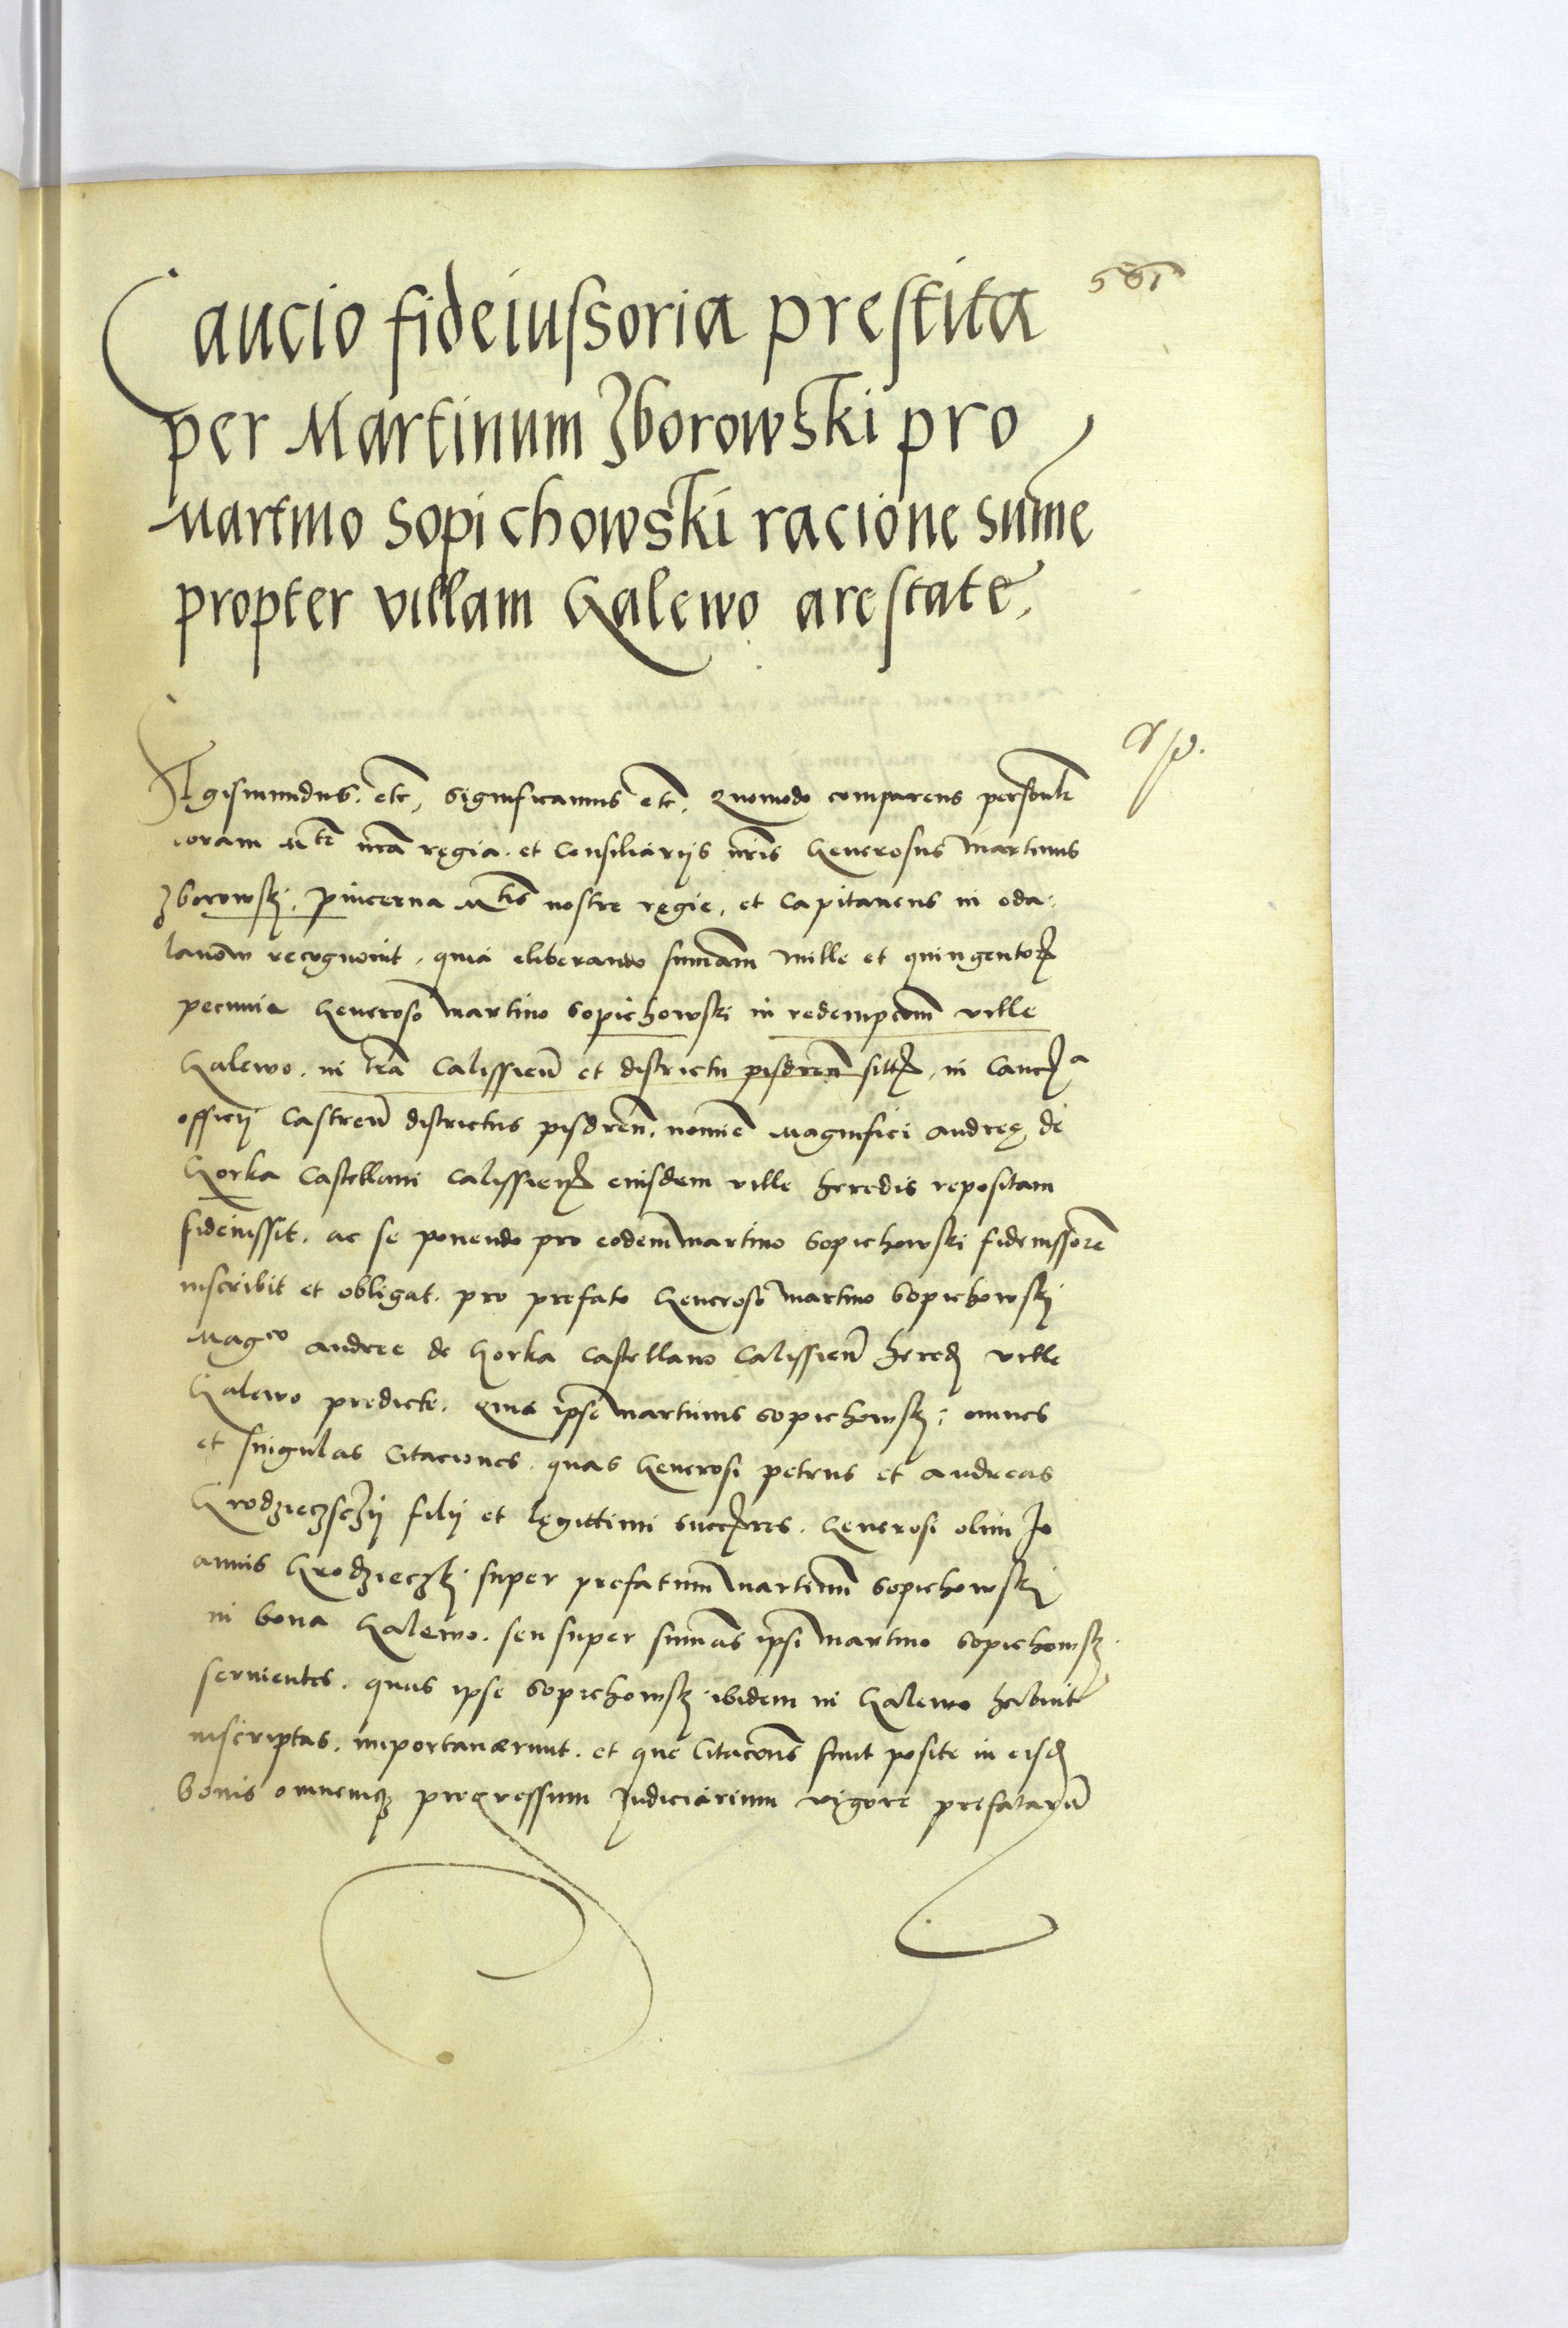 561
Caucio fideiussoria prestita
per Martinum Zborowski pro
Martino Sopichowski racione sume
propter villam Galewo arestate.
Ap.
Sigismundus. etc, Significamus etc. Quomodo comparens personlr
coram Mte nrã regia. et Consiliariis nris Generosus Martinus
Zborowski. pincerna Mtis nostre regie, et Capitaneus in oda-
lanow recognovit. quia eliberando sumam Mille et quingentor
pecunie Generoso Martino Sopichowski in redempcom ville
Galewo. in tra Calissien et districtu pisdren sitt, in Canca
officii Castren districtus pisdren. nomine Magnifici Andree de
Gorka Castellani Calissien eiusdem ville heredis repositam
fideiussit. ac se ponendo pro eodem Martino Sopichowski fideiussorem
inscribit et obligat. pro prefato Generoso Martino Sopichowski
Magco Andree de Gorka Castellano Calissien hered ville
Galewo predicte. Quia ipse Martinus Sopichowski omnes
et singulas Citaciones. quas Generosi petrus et Andreas
Grodzieczsczii filii et legittimi succres. Generosi olim Jo
annis Grodzieczki super prefatum Martinum Sopichowski
in bona Galewo. seu super sumas ipsi Martino Sopichowski
servientes. quas ipse Sopichowski ibidem in Galewo habuit
inscriptas. importaverunt. et que Citacones sunt posite in eisd
bonis omnemq progressum Judiciarium vigore prefatarum